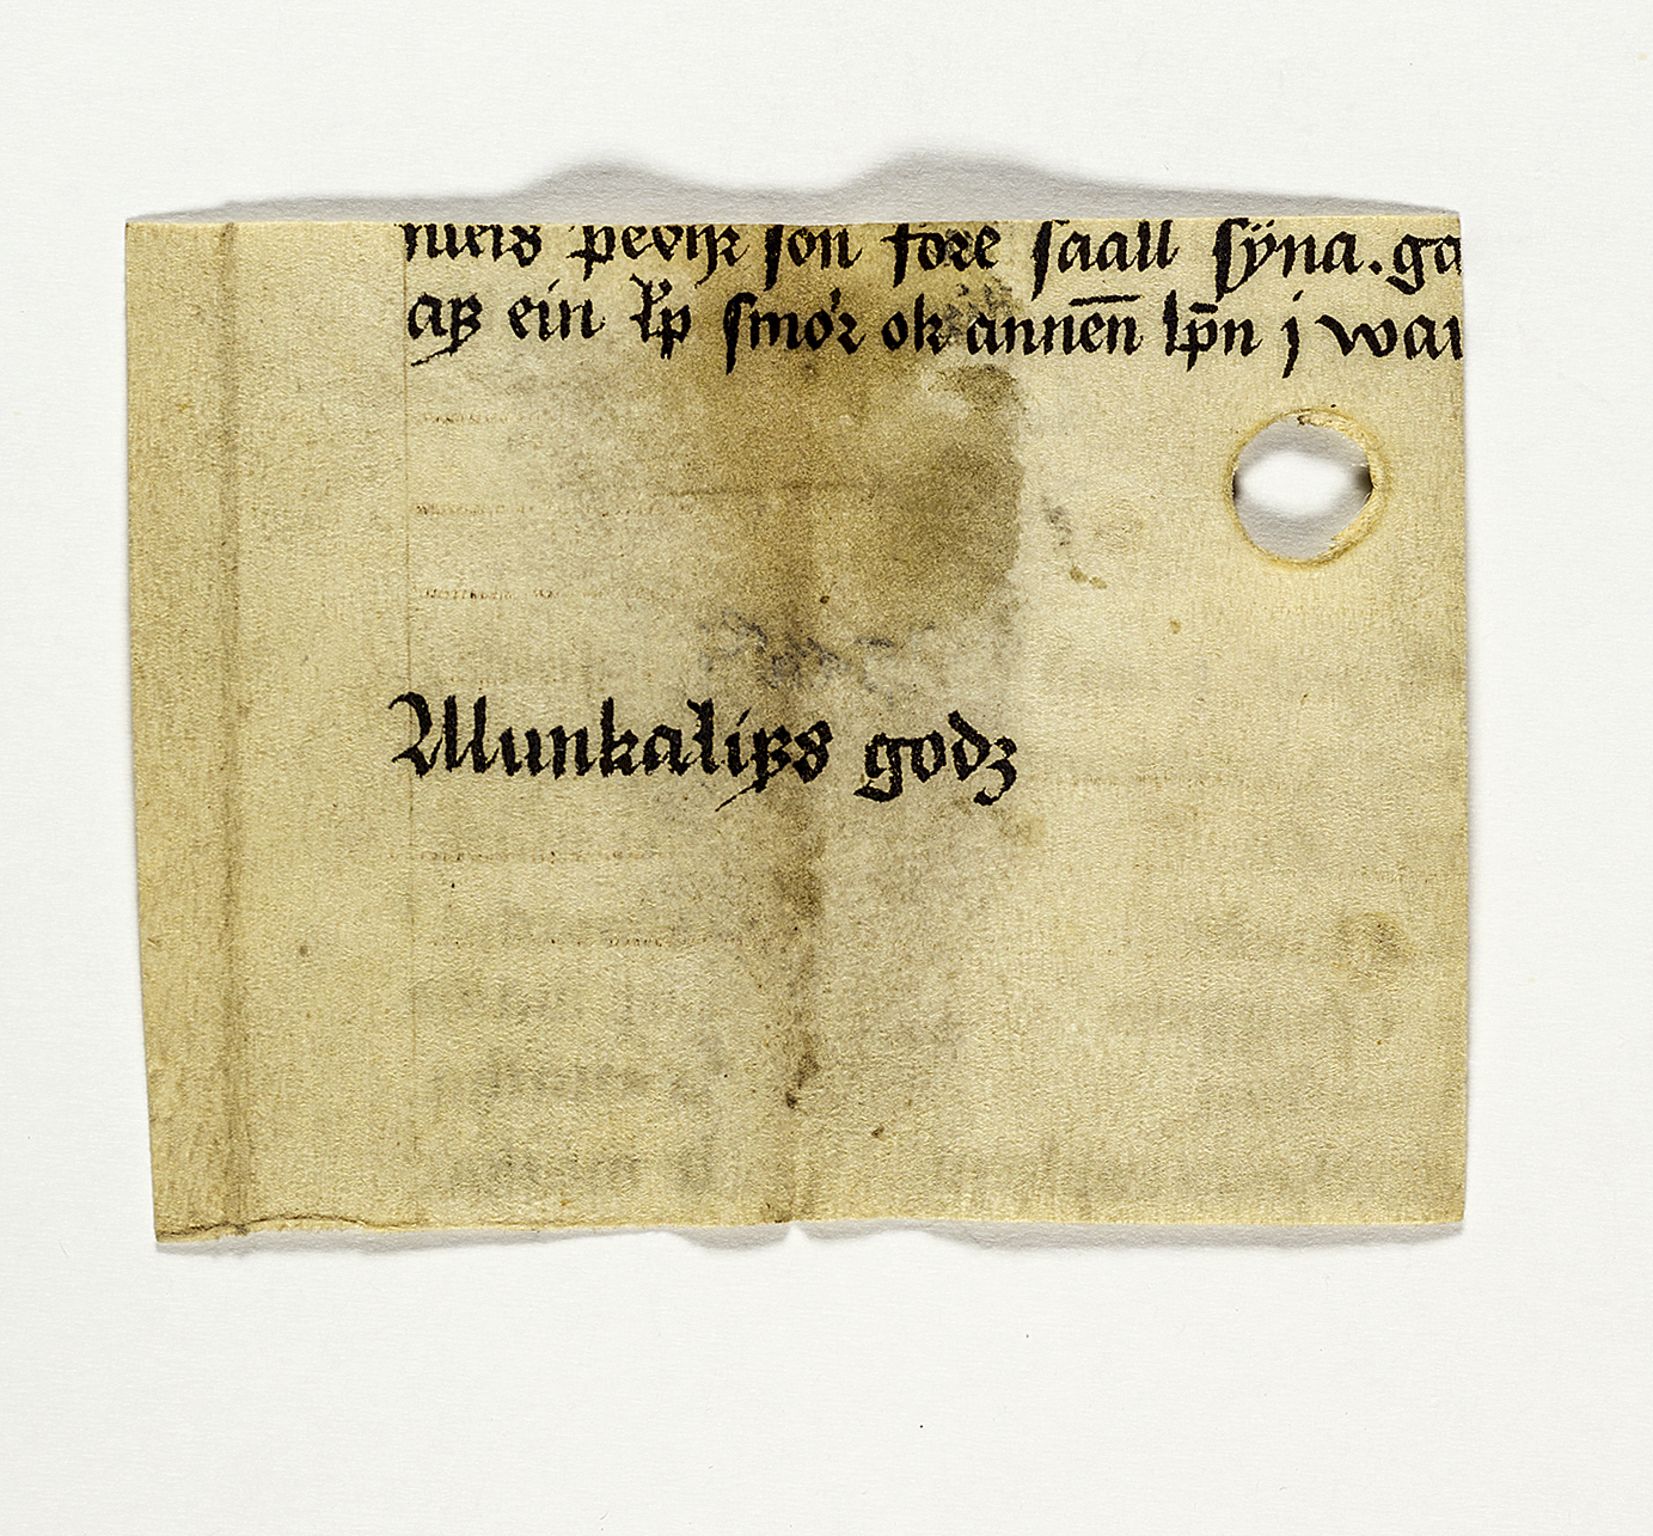 niels pedhr son fore saall syna. ga
aß ein lp smør ok annen̄ lpn̄ j war
Munkalißs godz